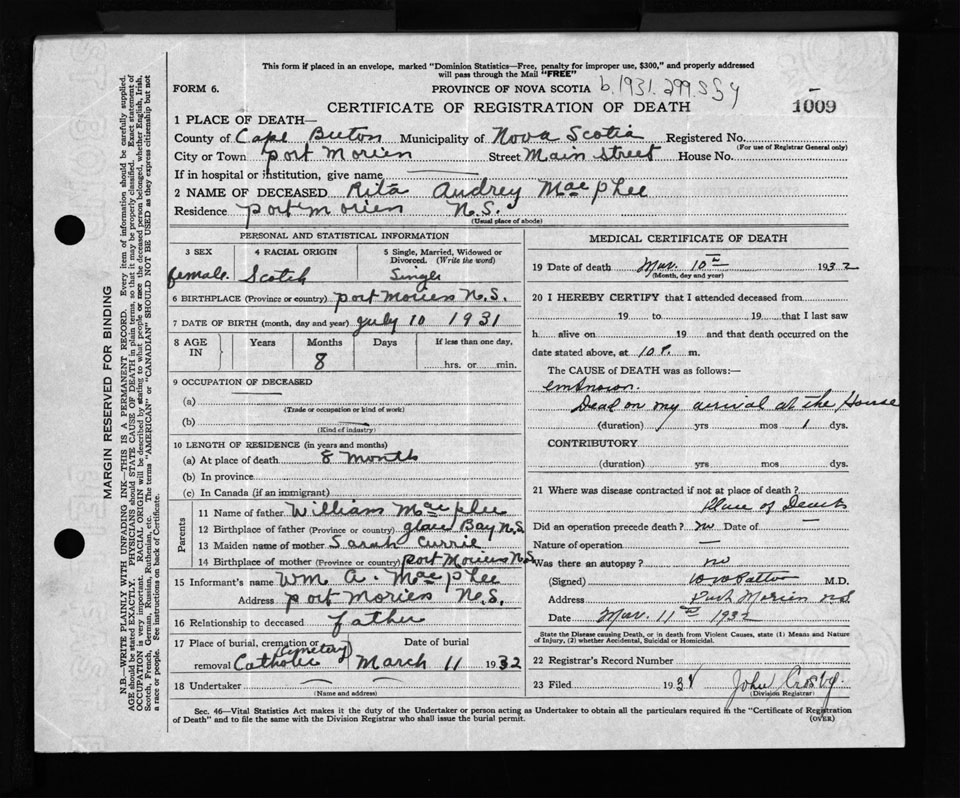 This form if placed in an envelope, marked "Dominion Statistics—Free, penalty for improper use, $300," and properly addressed
will pass through the Mail "FREE"
FORM 6. PROVINCE OF NOVA SCOTIA b.1931.299.
CERTIFICATE OF REGISTRATION OF DEATH 1009
1 PLACE OF DEATH—
County of Cape Breton Municipality of Nova Scotia Registered No.
(For use of Registrar General only)
City or Town Port Morien Street Main Street House No.
If in hospital or institution, give name
2 NAME OF DECEASED Rita Audrey MacPhee
Residence Port Morien N.S.
(Usual place of abode)
PERSONAL AND STATISTICAL INFORMATION
3 SEX 4 RACIAL ORIGIN 5 Single, Married, Widowed or
Divorced. (Write the word)
female. Scotch Single
6 BIRTHPLACE (Province or country) Port Morien N.S.
7 DATE OF BIRTH (month, day and year) July 10 1931
8 AGE IN Years Months Days If less than one day,
8 hrs. or min.
9 OCCUPATION OF DECEASED
(a)
(Trade or occupation or kind of work)
(b)
(Kind of industry)
10 LENGTH OF RESIDENCE (in years and months)
(a) At place of death 8 Months
(b) In province
(c) In Canada (if an immigrant)
Parents
11 Name of father William MacPhee
12 Birthplace of father (Province or country) Glace Bay N.S.
13 Maiden name of mother Sarah Currie
14 Birthplace of mother (Province or country) Port Morien N.S.
15 Informant's name Wm A. MacPhee
Address Port Morien N.S.
16 Relationship to deceased father
17 Place of burial, cremation or Date of burial
(Cemetery)
removal Catholic March 11 1932
18 Undertaker
(Name and address)
MEDICAL CERTIFICATE OF DEATH
19 Date of death Mar. 10th 1932
(Month, day and year)
20 I HEREBY CERTIFY that I attended deceased from
19 to 19 that I last saw
h alive on 19 and that death occurred on
date stated above, at 10 P. m.
The CAUSE of DEATH was as follows:—
unknown.
Dead on my arrival at the House
(duration) yrs mos 1 dys.
CONTRIBUTORY
(duration) yrs mos dys.
21 Where was disease contracted if not at place of death?
Place of Death
Did an operation precede death? no Date of —
Nature of operation —
Was there an autopsy? no
(Signed) M.D.
Address Port Morien N.S.
Date Mar. 11th 1932
State the Disease causing Death, or in death from Violent Causes, state (1) Means and Nature
of Injury, (2) whether Accidental, Suicidal or Homicidal.
22 Registrar's Record Number
23 Filed 193 John Crosby.
(Division Registrar)
Sec. 46—Vital Statistics Act makes it the duty of the Undertaker or person acting as Undertaker to obtain all the particulars required in the "Certificate of Registration
of Death" and to file the same with the Division Registrar who shall issue the burial permit. (OVER)
MARGIN RESERVED FOR BINDING
N.B.—WRITE PLAINLY WITH UNFADING INK—THIS IS A PERMANENT RECORD. Every item of information should be carefully supplied.
AGE should be stated EXACTLY. PHYSICIANS should STATE CAUSE OF DEATH in plain terms, so that it may be properly classified. Exact statement of
OCCUPATION is very important. RACIAL ORIGIN will be described by stating to what people or race the deceased person belonged, whether English, Irish,
Scotch, French, German, Russian, Ruthenian, etc. The terms "AMERICAN" or "CANADIAN" SHOULD NOT BE USED as they express citizenship but not
a race or people. See instructions on back of Certificate.